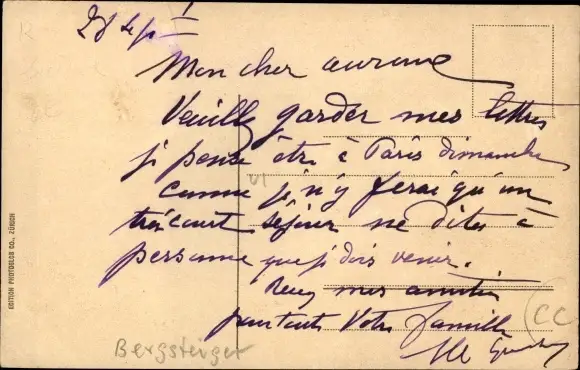 28 Sept
Mon cher
Veuillez garder mes lettres
je pense être à Paris dimanche
comme je n'y ferai qu'un
très court séjour ne dites à
personne que je dois venir.
mes amitiés
pour toute votre famille
EDITION PHOTOGLOB CO., ZÜRICH
Bergsteiger
CC